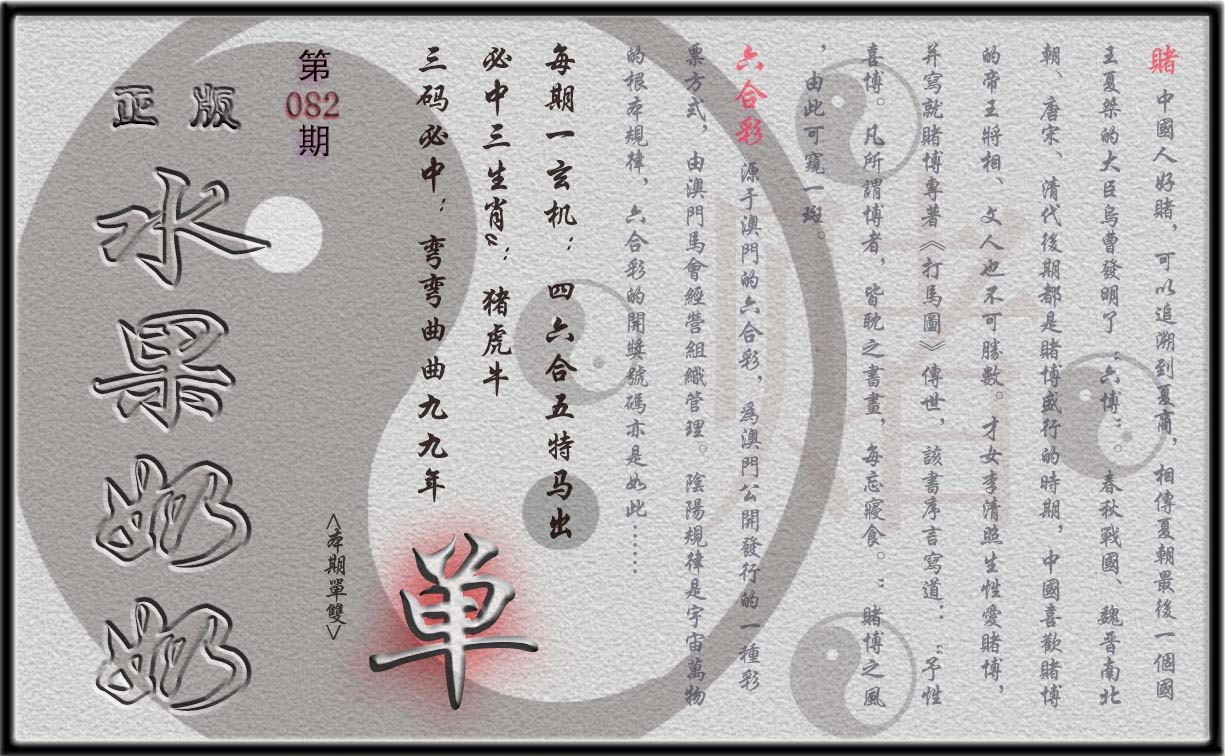 賭 中國人好賭，可以追溯到夏商，相傳夏朝最後一個國
王夏桀的大臣烏曹發明了“六博”。春秋戰國、魏晋南北
朝、唐宋、清代後期都是賭博盛行的時期，中國喜歡賭博
的帝王將相、文人也不可勝數。才女李清照生性愛賭博，
并寫就賭博專著《打馬圖》傳世，該書序言寫道：“予性
喜博。凡所謂博者，皆耽之書畫，每忘寢食。”賭博之風
，由此可窺一斑。
六合彩 源于澳門的六合彩，爲澳門公開發行的一種彩
票方式，由澳門馬會經營組織管理。陰陽規律是宇宙萬物
的根本規律，六合彩的開獎號碼亦是如此……
每期一玄机：四六合五特马出
必中三生肖〞：猪虎牛
三码必中：弯弯曲曲九九年
<本期單雙>
单
第
082
期
正版
水果奶奶
賭